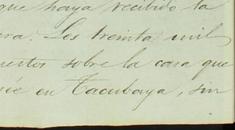 que haya recibido la
ra. Los treinta mil
puestos sobre la casa que
en Tacubaya, sin